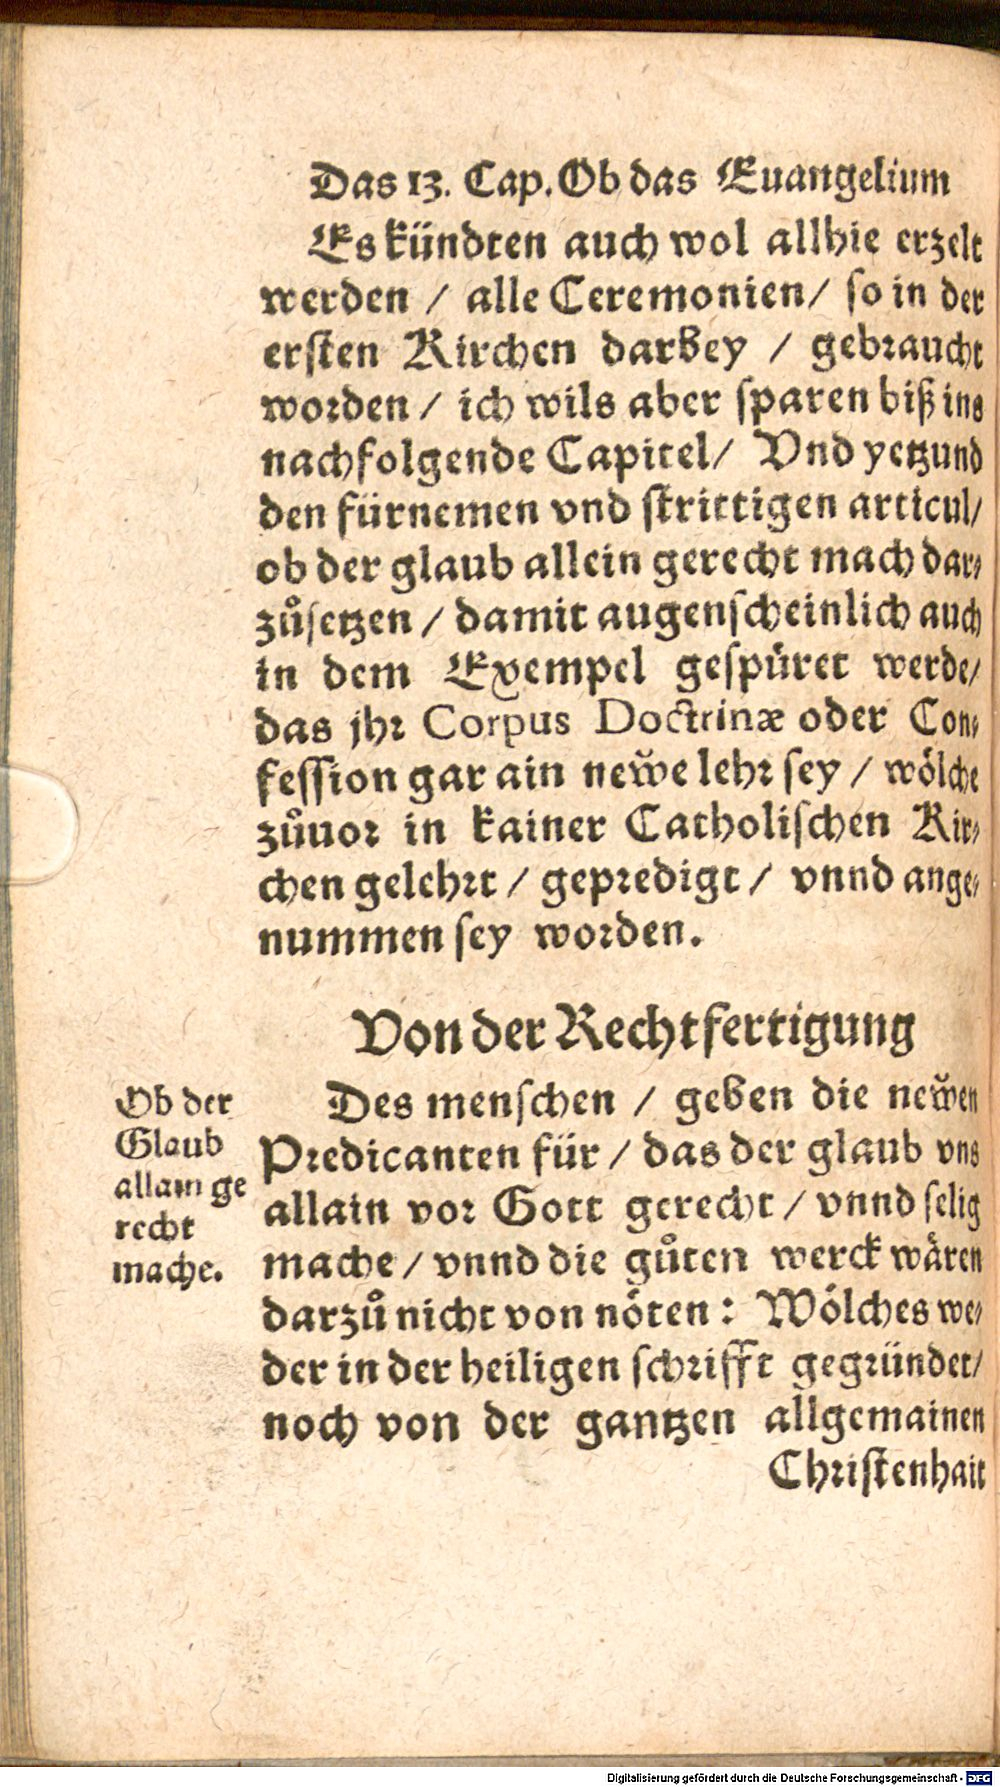 Das 13. Cap. Ob das Euangelium
Es kündten auch wol allhie erzelt
werden / alle Ceremonien / so in der
ersten Kirchen darbey / gebraucht
worden / ich wils aber sparen biß ins
nachfolgende Capitel / Vnd yetzund
den fürnemen vnd strittigen articul /
ob der glaub allein gerecht mach dar⸗
zůsetzen / damit augenscheinlich auch
in dem Exempel gespüret werde /
das jhr Corpus Doctrinæ oder Con⸗
fession gar ain newe lehr sey / wölche
zůuor in kainer Catholischen Kir⸗
chen gelehrt / gepredigt / vnnd ange⸗
nummen sey worden.
Von der Rechtfertigung
Ob der
Glaub
allain ge
recht
mache.
Des menschen / geben die newen
Predicanten für / das der glaub vns
allain vor Gott gerecht / vnnd selig
mache / vnnd die gůten werck wären
darzů nicht von nöten : Wölches we⸗
der in der heiligen schrifft gegründet /
noch von der gantzen allgemainen
Christenhait
Digitalisierung gefördert durch die Deutsche Forschungsgemeinschaft - DFG